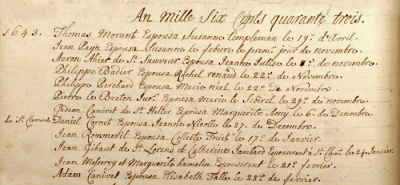 An Mille Six Cents quarante trois.
1643. Thomas Morant Espousa Susanne Templeman le 19e. d'Avril.
Jean Payn Espousa Susanne le febvre le premr. jour de novembre.
Aaron Ahier de St. Sauveur Espousa Jeanne le 1r. de novembre.
Philippe Badier Espousa Rachel renaud le 22e. de Novembre.
Philippe Perchard Espousa Marie niel le 22e. de Novembre
Pierre le Breton Junr. Espousa marie le Sebirel le 29e. de novembre.
Canivet de St. Helier Espousa Marguerite Amy le 6. de Decembre.
de St. Clement Daniel Cornet Espousa Jeanne Nicolle le 27. de Decembre.
Jean Rommeril Espousa Collette le 17e. de Janvier.
Jean Gibaut de St. Lorens et Catherine Espouserent à St. le 24. Janvier.
Jean Messervy et Marguerite hamelin Espouserent le 21e. fevrier.
Adam Canivet Espousa Elizabeth Falle le 28e. de fevrier.